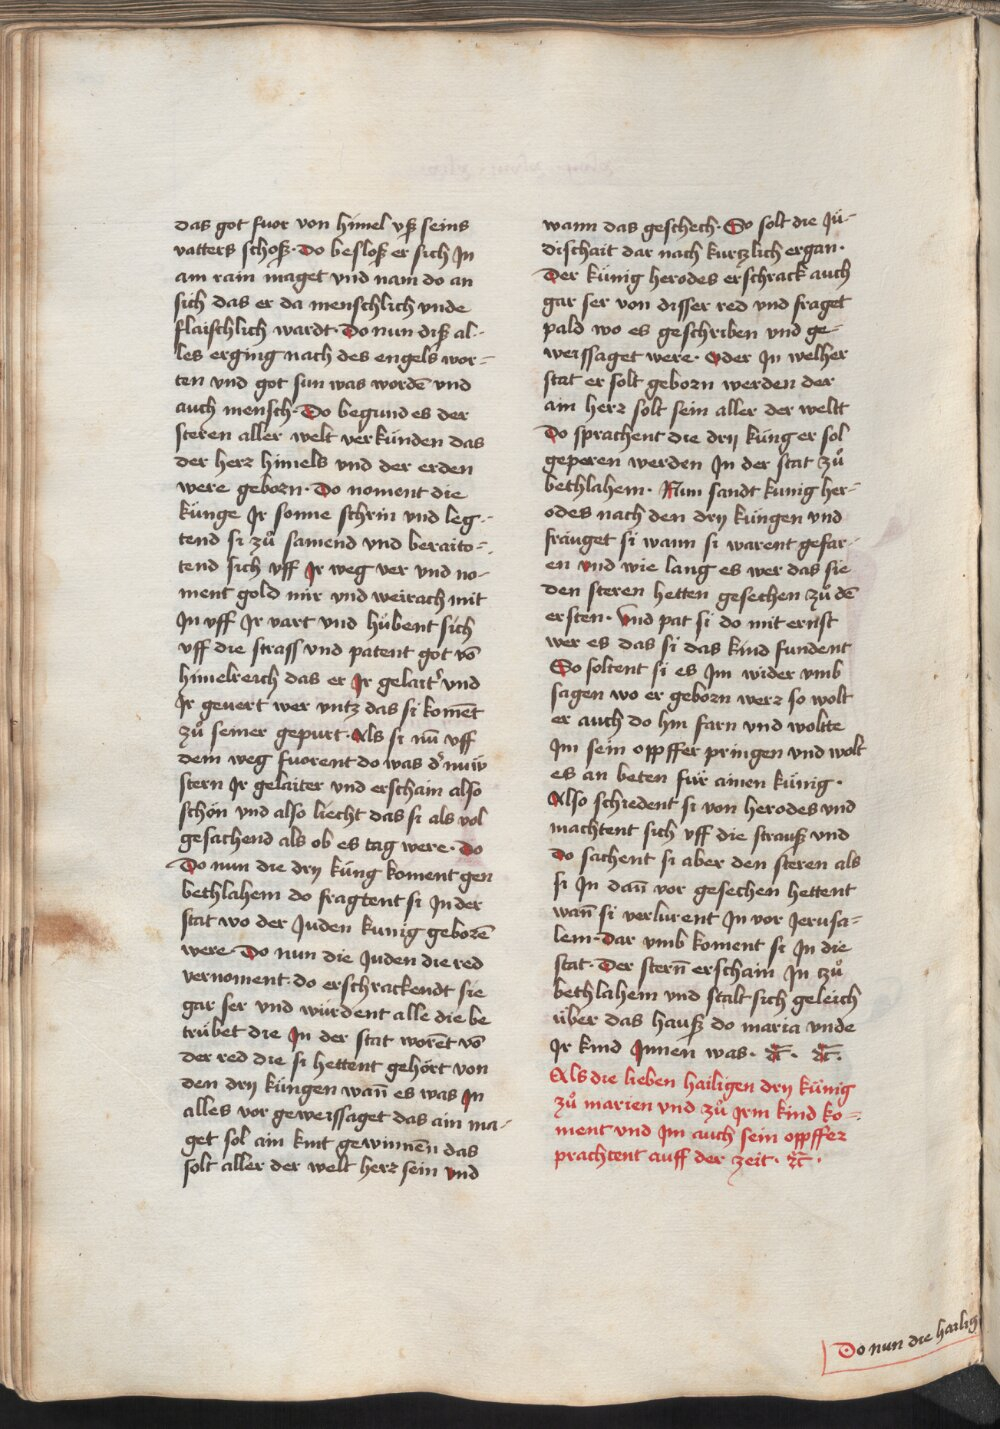 das got fuor von himel vß seins
vatters schoß. Do besloß er sich Jn
am rain maget vnd nam do an
sich das er da menschlich vnde
flaischlich wardt. Do nun diß al-
les erging nach des engels wor-
ten vnd got sun was wordē vnd
auch mensch. Do begund es der
steren aller welt verkünden das
der herr himels vnd der erden
were geborn. Do noment die
künge Jr sonne schrin vnd leg-
tend si zuͦ samend vnd beraito-
tend sich vff Jr weg ver vnd no-
ment gold mir vnd weirach mit
Jn vff Jr vart vnd hübent sich
vff die strass vnd patent got vō
himelreich das er Jr gelait' vnd
Jr geuert wer vntz das si komēt
zuͦ seiner gepurt. Als si nū vff
dem weg fuorent do was d' nuẅ
stern Jr gelaiter vnd erschain also
schön vnd also liecht das si als vol
gesachend als ob es tag were. Do
Do nun die drÿ küng koment gen
bethlahem do fragtent si Jn der
stat wo der Juden kunig geborē
were. Do nun die Juden die red
vernoment. do erschrackendt sie
gar ser vnd würdent alle die be
trübet die Jn der stat worēt vō
der red die si hettent gehört von
den drÿ küngen wan̄ es was Jn
alles vor geweissaget das ain ma-
get sol ain kint gewinnēn das
solt aller der welt herr sein vnd
wann das geschech. So solt die Jü-
dischait dar nach kurtzlich ergan.
Der künig herodes erschrack auch
gar ser von disser red vnd fraget
pald wo es geschriben vnd ge-
weissaget were. Oder Jn welher
stat er solt geborn werden der
ain herr solt sein aller der weltt
Do sprachent die drÿ küng er sol
geperen werden Jn der stat zuͦ
bethlahem. Nun sandt kunig her-
odes nach den drÿ küngen vnd
frauget si wann si warent gefar-
en vnd wie lang es wer das sie
den steren hetten gesechen zuͦ dē
ersten. Vnd pat si do mit ernst
wer es das si das kind fundent
So soltent si es Jm wider vmb
sagen wo er geborn werr so wolt
er auch do hin farn vnd woltte
Jm sein oppffer pringen vnd wolt
es an beten für ainen künig.
Also schiedent si von herodes vnd
machtent sich vff die strauß vnd
Do sachent si aber den steren als
si Jn dan̄ vor gesechen hettent
wan̄ si verlurent Jn vor Jerusa-
lem. Dar vmb koment si Jn die
stat. Der stern̄ erschain Jn zuͦ
bethlahem vnd stalt sich geleich
über das hauß do maria vnde
Jr kind Jnnen was. ꝛc̄. ꝛc̄.
Als die lieben hailigen drÿ künig
zuͦ marien vnd zuͦ Jrm kind ko-
ment vnd Jm auch sein oppffer
prachtent auff der zeit. ꝛc̄.
Do nun die hailig